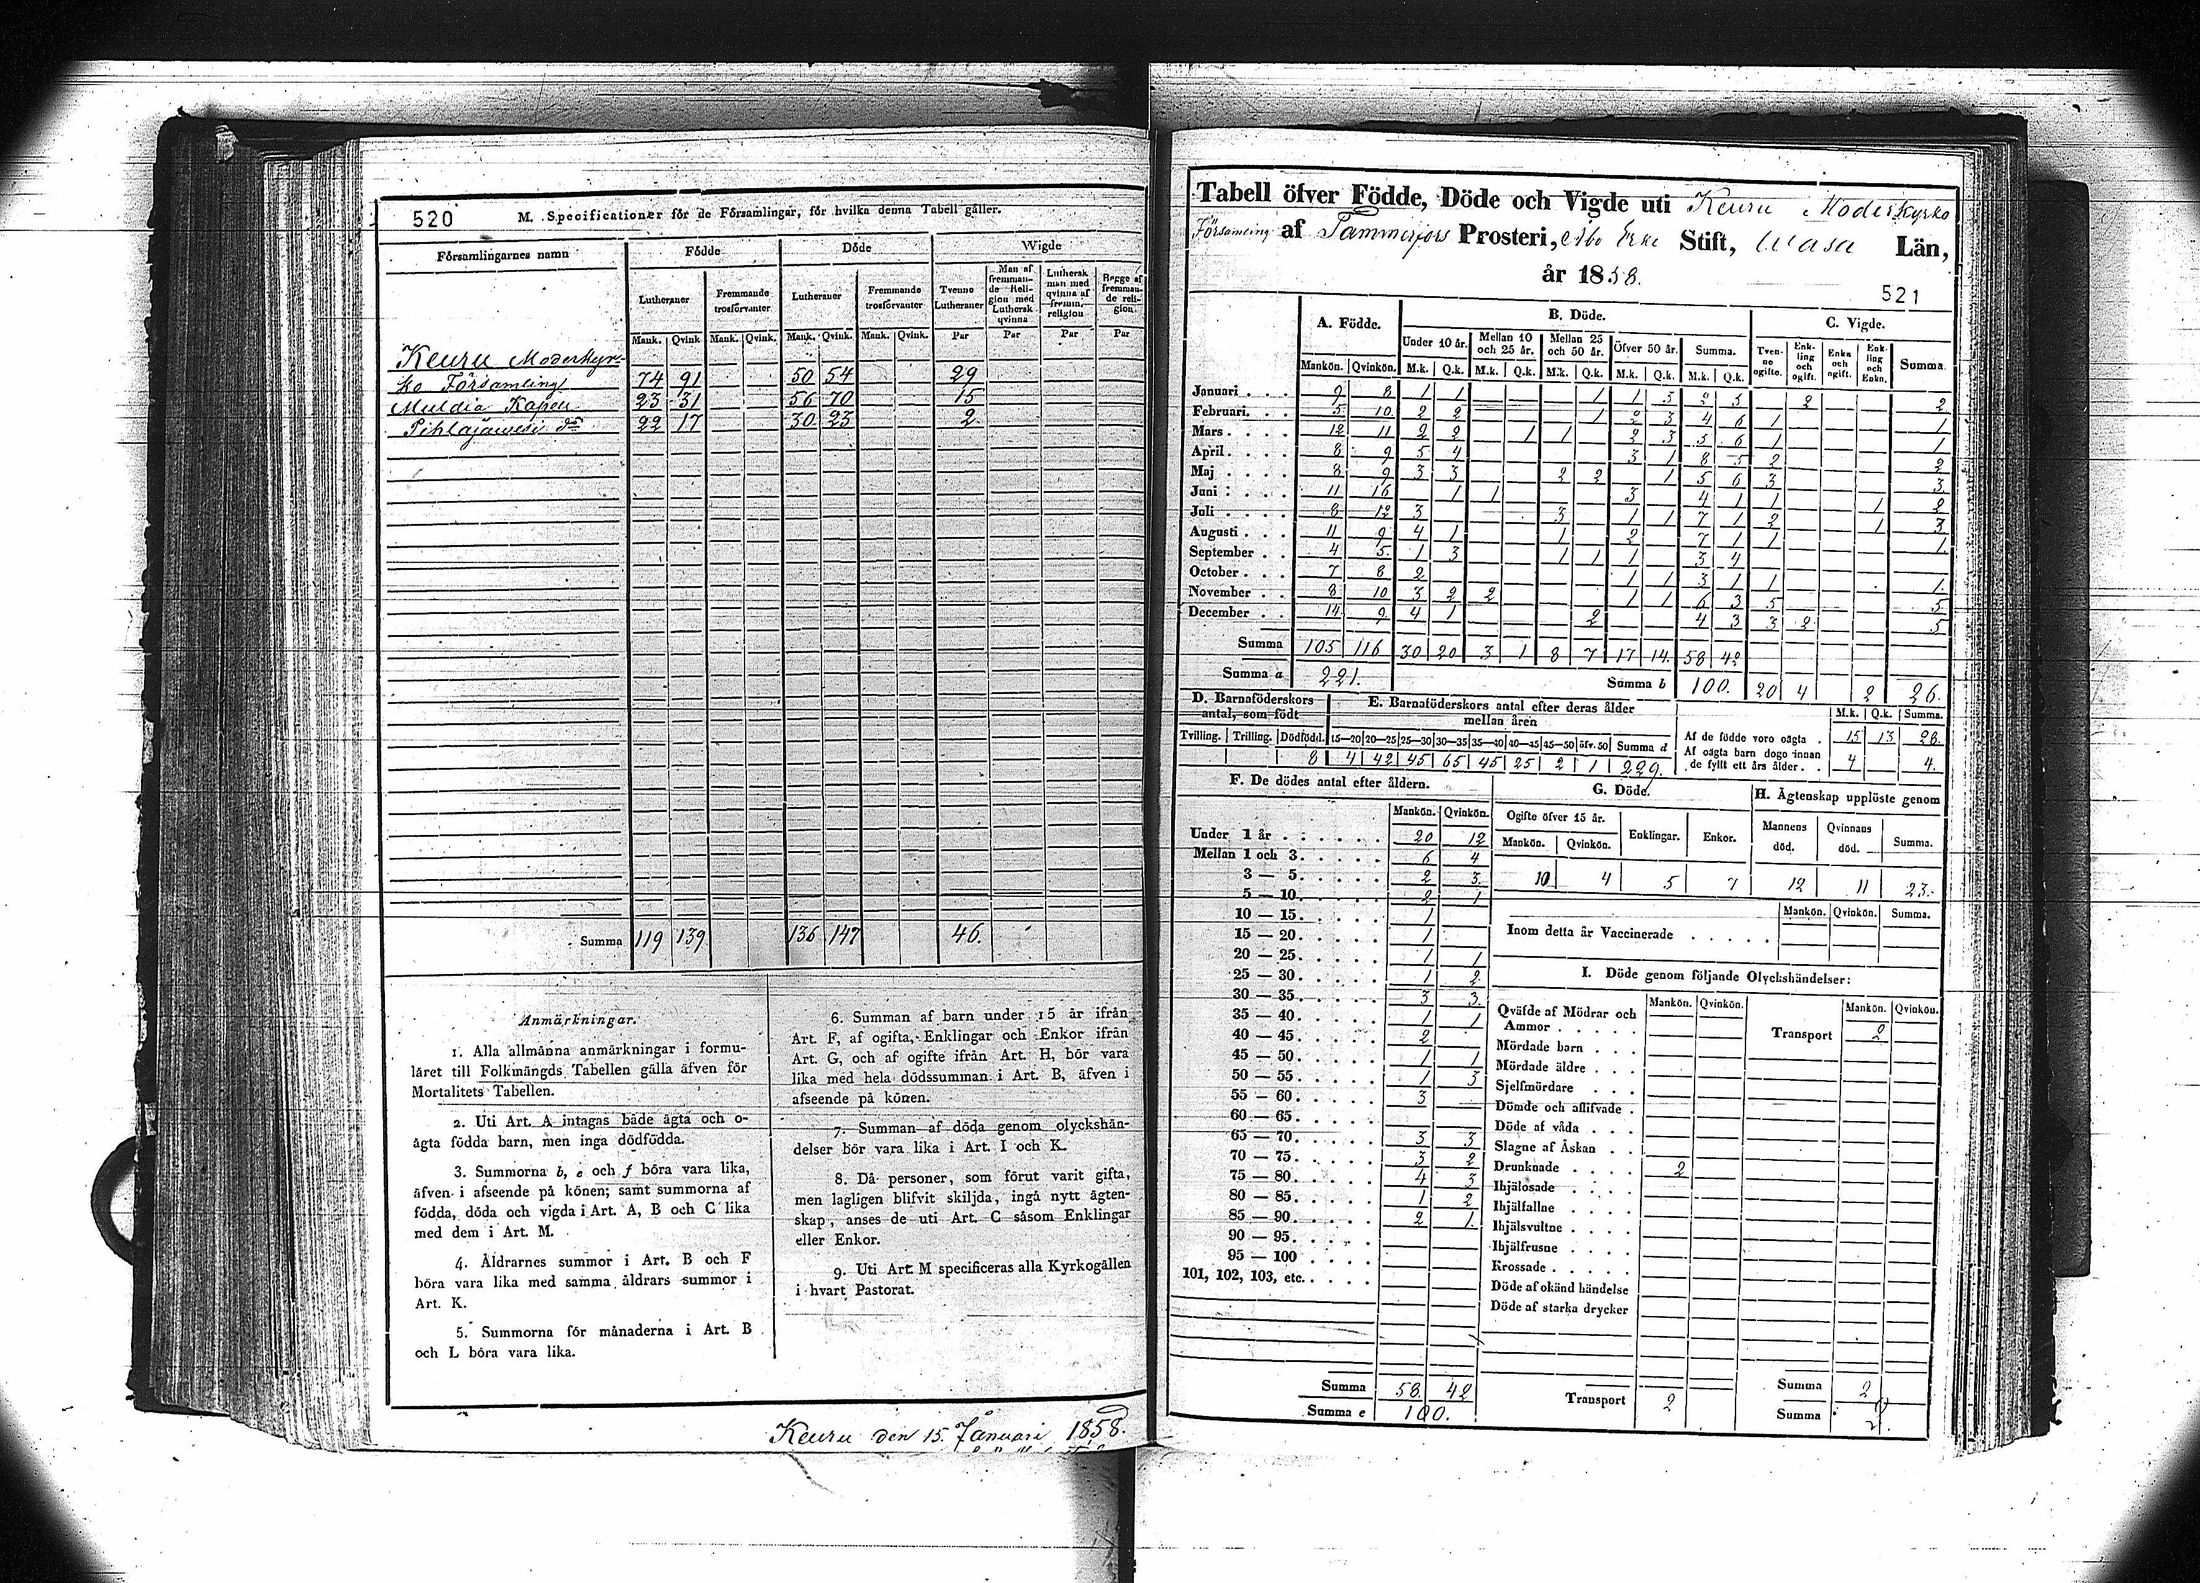 520
M. Specificationer för de Församlingar, för hvilka denna Tabell gäller.
Församlingarnes namn Födde Döde Wigde
Lutheraner Fremmande trosförvanter Lutheraner Fremmande trosförvanter Tvenne Lutheraner Man af fremmande Religion med Luthersk qvinna Luthersk man med qvinna af fremm. religion Begge af fremmande religion.
Mank. Qvink Mank. Qvink. Mank. Qvink. Mank. Qvink. Par Par Par Par
Keuru Moderkyr-
ko Församling 74 91 50 54 29
Muldia Kapell 23 31 56 70 15
Pihlajawesi do 22 17 30 23 2
Summa 119 139 136 147 46.
Anmärkningar.
1. Alla allmänna anmärkningar i formu-
läret till Folkmängds Tabellen gälla äfven för
Mortalitets Tabellen.
2. Uti Art. A intagas både ägta och o-
ägta födda barn, men inga dödfödda.
3. Summorna b, e och f böra vara lika,
äfven i afseende på könen; samt summorna af
födda, döda och vigda i Art. A, B och C lika
med dem i Art. M.
4. Åldrarnes summor i Art. B och F
böra vara lika med samma åldrars summor i
Art. K.
5. Summorna för månaderna i Art. B
och L böra vara lika.
6. Summan af barn under 15 år ifrån
Art. F, af ogifta, Enklingar och Enkor ifrån
Art. G, och af ogifte ifrån Art. H, bör vara
lika med hela dödssumman i Art. B, äfven i
afseende på könen.
7. Summan af döda genom olyckshän-
delser bör vara lika i Art. I och K.
8. Då personer, som förut varit gifta,
men lagligen blifvit skiljda, ingå nytt ägten-
skap, anses de uti Art. C såsom Enklingar
eller Enkor.
9. Uti Art M specificeras alla Kyrkogällen
i hvart Pastorat.
Keuru den 15. Januari 1858.
Tabell öfver Födde, Döde och Vigde uti Keuru Moderkyrko
Församling af Tammerfors Prosteri, Åbo Erke Stift, Wasa Län,
år 1858.
521
A. Födde. B. Döde. C. Vigde.
Under 10 år. Mellan 10 och 25 år. Mellan 25 och 50 år. Öfver 50 år. Summa. Tvenne ogifte. Enkling och ogift. Enka och ogift. Enkling och Enkn. Summa.
Mankön. Qvinkön. M.k. Q.k. M.k. Q.k. M.k. Q.k. M.k. Q.k. M.k. Q.k.
Januari 9 8 1 1 1 1 3 2 5 2 2
Februari. 5 10 2 2 1 2 3 4 6 1 1
Mars 12 11 2 2 1 1 2 3 5 6 1 1
April 8 9 5 4 3 1 8 5 2 2
Maj 8 9 3 3 2 2 1 5 6 3 3
Juni 11 16 1 1 3 4 1 1 1 2
Juli 8 12 3 3 1 1 7 1 2 1 3
Augusti 11 9 4 1 1 2 7 1 1 1
September 4 5 1 3 1 1 1 3 4
October 7 8 2 1 1 3 1 1 1
November 8 10 3 2 2 1 1 6 3 5 5
December 14 9 4 1 2 4 3 3 2 5
Summa 105 116 30 20 3 1 8 7 17 14 58 42
Summa a 221. Summa b 100. 20 4 2 26.
D. Barnaföderskors antal, som födt
Tvilling. Trilling. Dödfödd.
8
E. Barnaföderskors antal efter deras ålder mellan åren
15—20 20—25 25—30 30—35 35—40 40—45 45—50 öfv. 50 Summa d
4 42 45 65 45 25 2 1 229.
M.k. Q.k. Summa.
Af de födde voro oägta 15 13 28.
Af oägta barn dogo innan
de fyllt ett års ålder 4 4.
F. De dödes antal efter åldern.
Mankön. Qvinkön.
Under 1 år 20 12
Mellan 1 och 3 6 4
3 — 5 2 3
5 — 10 2 1
10 — 15 1
15 — 20 1
20 — 25 1 1
25 — 30 1 2
30 — 35 3 3
35 — 40 1 1
40 — 45 2
45 — 50 1 1
50 — 55 1 3
55 — 60 3
60 — 65
65 — 70 3 3
70 — 75 3 2
75 — 80 4 3
80 — 85 1 2
85 — 90 2 1
90 — 95
95 — 100
101, 102, 103, etc.
Summa 58 42
Summa e 100.
G. Döde.
Ogifte öfver 15 år. Enklingar. Enkor.
Mankön. Qvinkön.
10 4 5 7
H. Ägtenskap upplöste genom
Mannens död. Qvinnans död. Summa.
12 11 23.
Mankön. Qvinkön. Summa.
Inom detta år Vaccinerade
I. Döde genom följande Olyckshändelser:
Mankön. Qvinkön. Mankön. Qvinkön.
Qväfde af Mödrar och
Ammor Transport 2
Mördade barn
Mördade äldre
Sjelfmördare
Dömde och aflifvade
Döde af våda
Slagne af Åskan
Drunknade 2
Ihjälosade
Ihjälfallne
Ihjälsvultne
Ihjälfrusne
Krossade
Döde af okänd händelse
Döde af starka drycker
Transport 2 Summa 2
Summa 2.